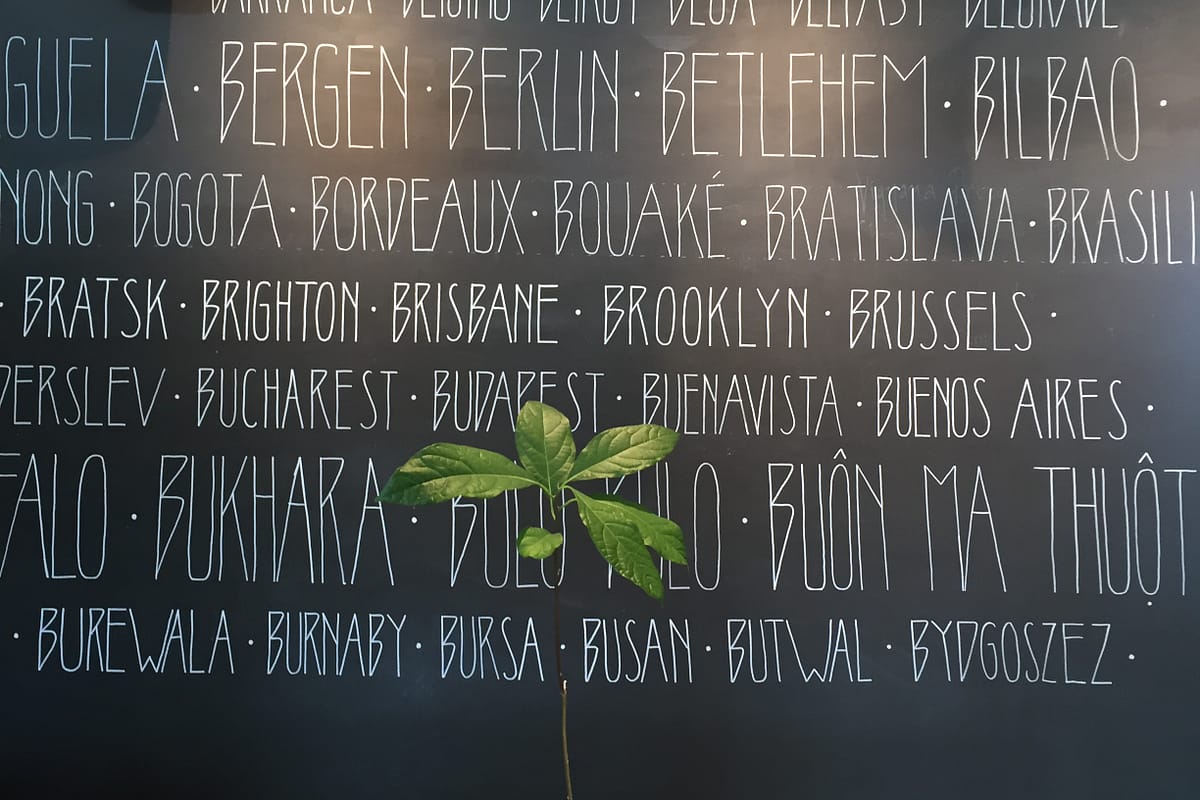 BARRANCA BEIJING BEIRUT BEJA BELFAST BELGRADE
GUELA · BERGEN · BERLIN · BETLEHEM · BILBAO ·
NONG · BOGOTA · BORDEAUX · BOUAKÉ · BRATISLAVA · BRASILI
· BRATSK · BRIGHTON · BRISBANE · BROOKLYN · BRUSSELS ·
DERSLEV · BUCHAREST · BUDAPEST · BUENAVISTA · BUENOS AIRES ·
FALO · BUKHARA · · BUÔN MA THUỘT
· BUREWALA · BURNABY · BURSA · BUSAN · BUTWAL · BYDGOSZEZ ·